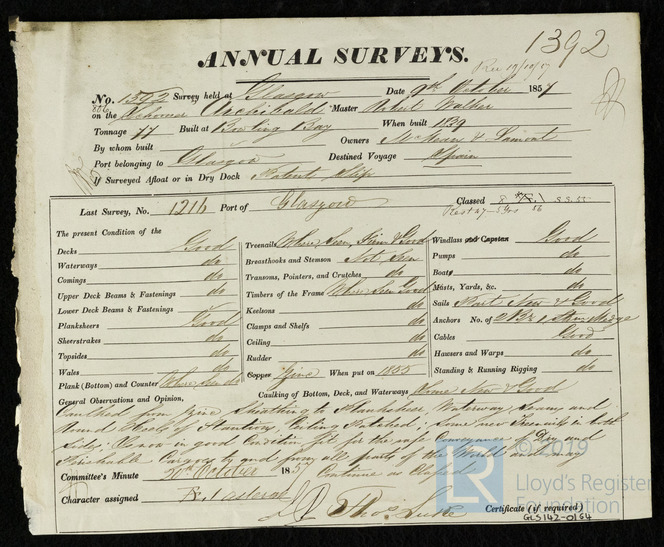 1392
ANNUAL SURVEYS.
Rec 19/10/57
No. 1392 Survey held at Glasgow Date 9th October 1857
866
on the Schooner Archibald Master Robert Walker
Tonnage 77 Built at Bowling Bay When built 1839
By whom built Owners McMean & Lamont
Port belonging to Glasgow Destined Voyage Spain
If Surveyed Afloat or in Dry Dock Patent Slip
Last Survey, No. 1216 Port of Glasgow Classed
The present Condition of the
Decks Good
Waterways do
Comings do
Upper Deck Beams & Fastenings do
Lower Deck Beams & Fastenings
Planksheers Good
Sheerstrakes do
Topsides do
Wales do
Plank (Bottom) and Counter Where seen do
Treenails Where Seen, Firm & Good
Breasthooks and Stemson Not Seen
Transoms, Pointers, and Crutches do
Timbers of the Frame Where Seen Good
Keelsons do
Clamps and Shelfs do
Ceiling do
Rudder do
Copper Zinc When put on 1855
Windlass and Capstan Good
Pumps do
Boats do
Masts, Yards, &c. do
Sails Part New & Good
Anchors No. of 2 Br, 1 Stream
Cables Good
Hawsers and Warps do
Standing & Running Rigging do
Caulking of Bottom, Deck, and Waterways Where New & Good
General Observations and Opinion,
Caulked from Zinc Sheathing to Planksheer, Waterway Seams and
round Heels of Stantions, Ceiling Patched; Some new Treenails in both
Sides; Vessel in good Condition fit for the safe Conveyance of Dry and
Perishable Cargoes to and from all parts of the World
Continue as Classed
Committee's Minute 20th October 1857
Character assigned
Thos. Luke
Certificate (if required)
GLS142-0164
© 2019
LR
Lloyd's Register
Foundation